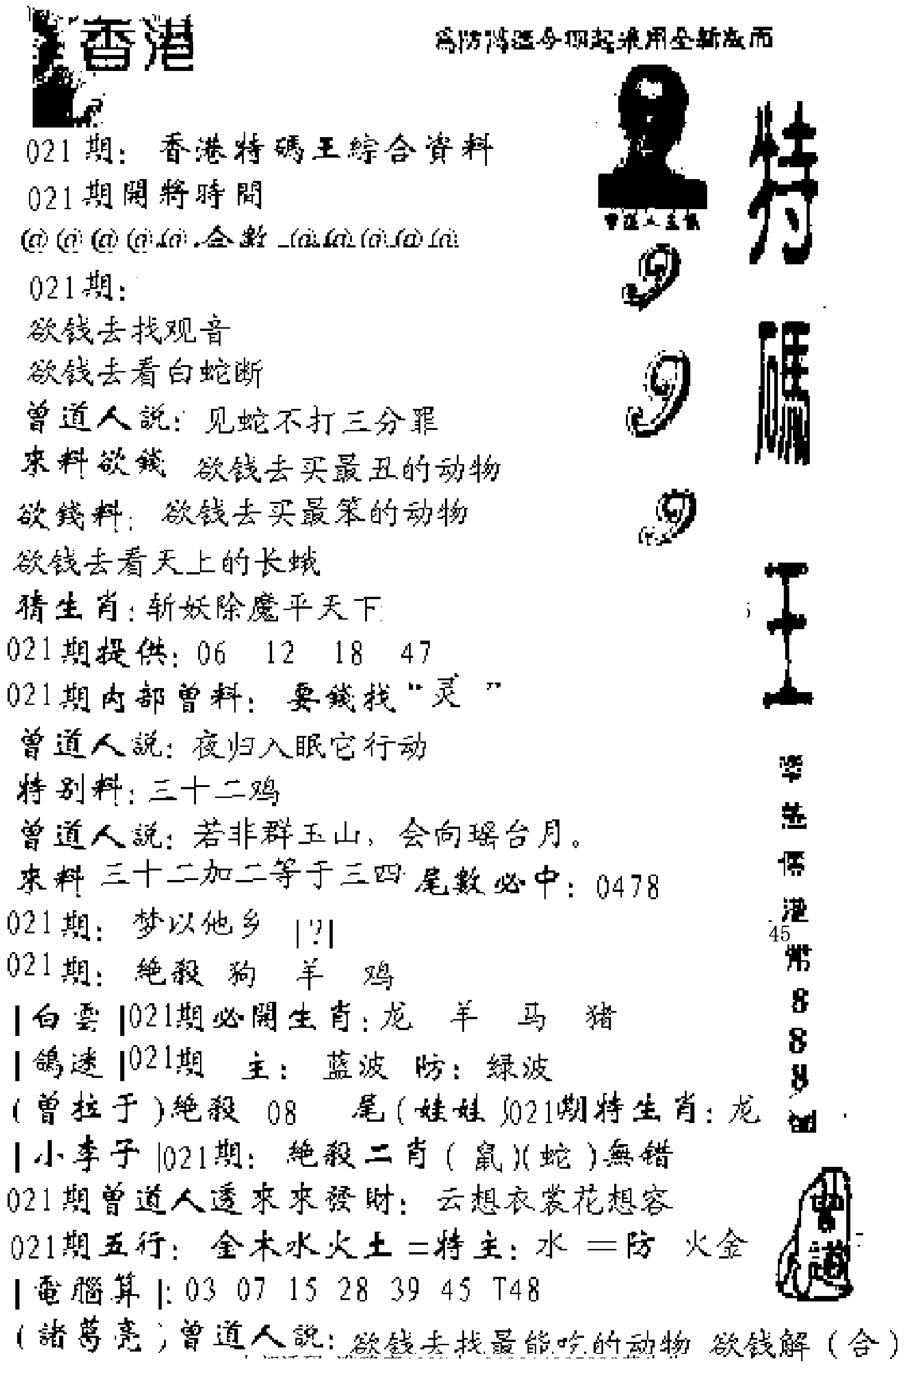 香港
為防偽造今期起采用全新版面
特碼王
曾道人主氣
999
021期：香港特碼王綜合資料
021期開將時間
@@@@@.合數_@@@@@
021期：
欲钱去找观音
欲钱去看白蛇断
曾道人説：见蛇不打三分罪
來料欲錢 欲钱去买最丑的动物
欲錢料：欲钱去买最笨的动物
欲钱去看天上的长蛾
猜生肖：斩妖除魔平天下
021期提供：06 12 18 47
021期内部曾料：要錢找“灵”
曾道人説：夜归入眠它行动
特别料：三十二鸡
曾道人説：若非群玉山，会向瑶台月。
來料 三十二加二等于三四 尾數必中：0478
021期：梦以他乡 |?|
021期：絶殺 狗 羊 鸡
|白雲|021期必開生肖：龙 羊 马 猪
|鴿迷|021期 主：蓝波 防：绿波
(曾拉于)絶殺 08 尾(娃娃)021期特生肖：龙
|小李子|021期：絶殺二肖(鼠)(蛇)無错
021期曾道人透來來發財：云想衣裳花想容
021期五行：金木水火土=特主：水 =防 火金
|電腦算|：03 07 15 28 39 45 T48
(諸葛亮)曾道人説：欲钱去找最能吃的动物 欲钱解(合)
45
888
曾道